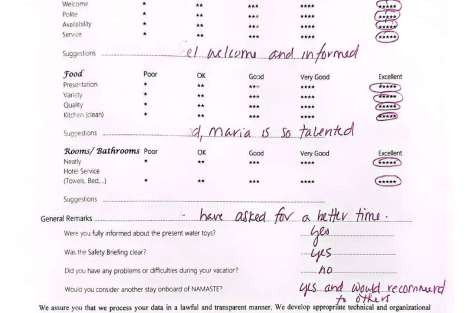 Welcome * ** *** **** *****
Polite * ** *** **** *****
Availability * ** *** **** *****
Service * ** *** **** *****
Suggestions el welcome and informed
Food Poor OK Good Very Good Excellent
Presentation * ** *** **** *****
Variety * ** *** **** *****
Quality * ** *** **** *****
Kitchen (clean) * ** *** **** *****
Suggestions d, Maria is so talented
Rooms/ Bathrooms Poor OK Good Very Good Excellent
Neatly * ** *** **** *****
Hotel Service
(Towels, Bed,..) * ** *** **** *****
Suggestions
General Remarks - have asked for a better time.
Were you fully informed about the present water toys? yes
Was the Safety Briefing clear? yes
Did you have any problems or difficulties during your vacation? no
Would you consider another stay onboard of NAMASTE? yes and would recommend
to others
We assure you that we process your data in a lawful and transparent manner. We develop appropriate technical and organizational